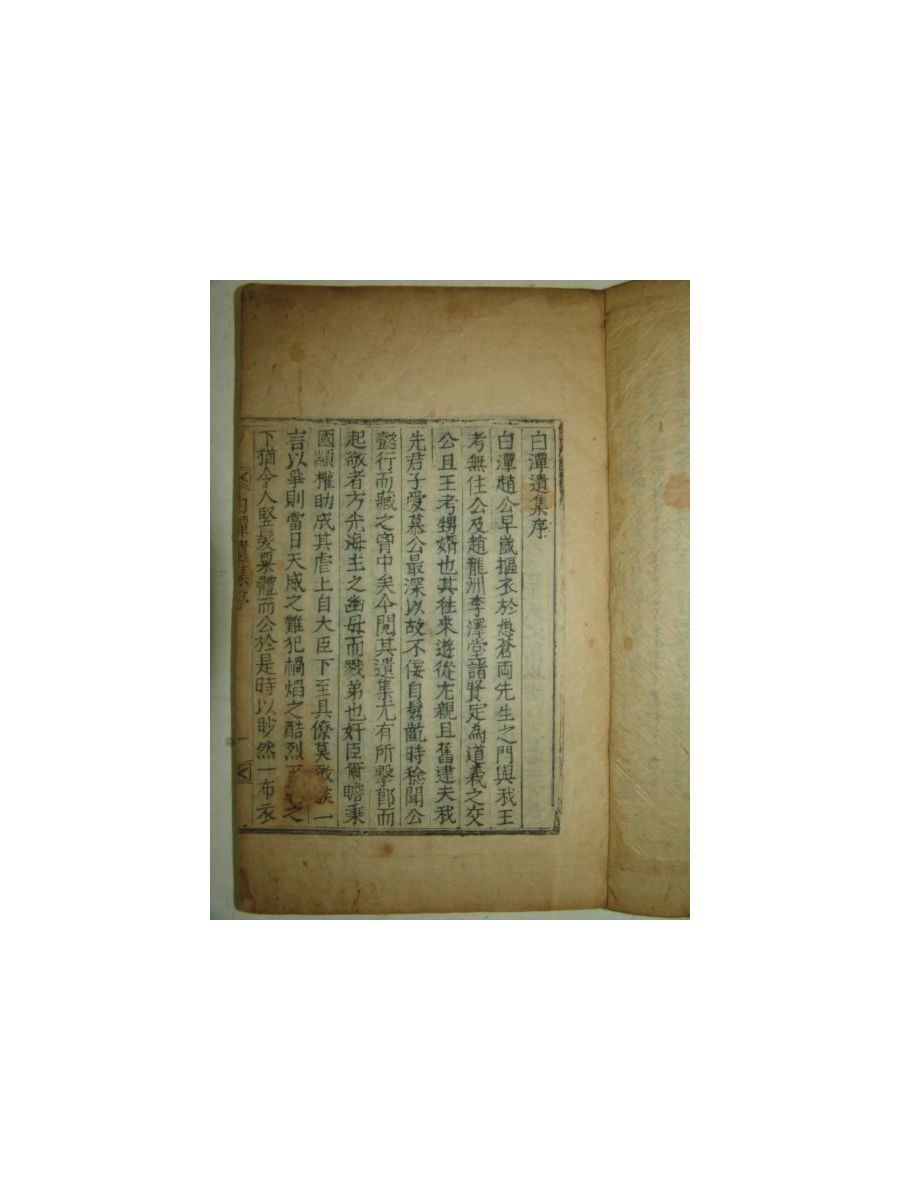 白潭遺集序
白潭趙公早歲摳衣於愚蒼兩先生之門與我王
考無住公及趙龍洲李澤堂諸賢定為道義之交
公且王考甥婿也其徃來遊從尤親且舊逮夫我
先君子愛慕公最深以故不佞自髫齓時稔聞公
懿行而藏之胷中矣今閱其遺集尤有所擊節而
起敬者方光海主之幽毋而戮弟也奸臣爾瞻秉
國顓權助成其虐上自大臣下至具僚莫敢一
言以爭則當日天威之難犯禍焰之酷烈之
下猶令人竪髮粟體而公於是時以眇然一布衣
白潭遺集序
一